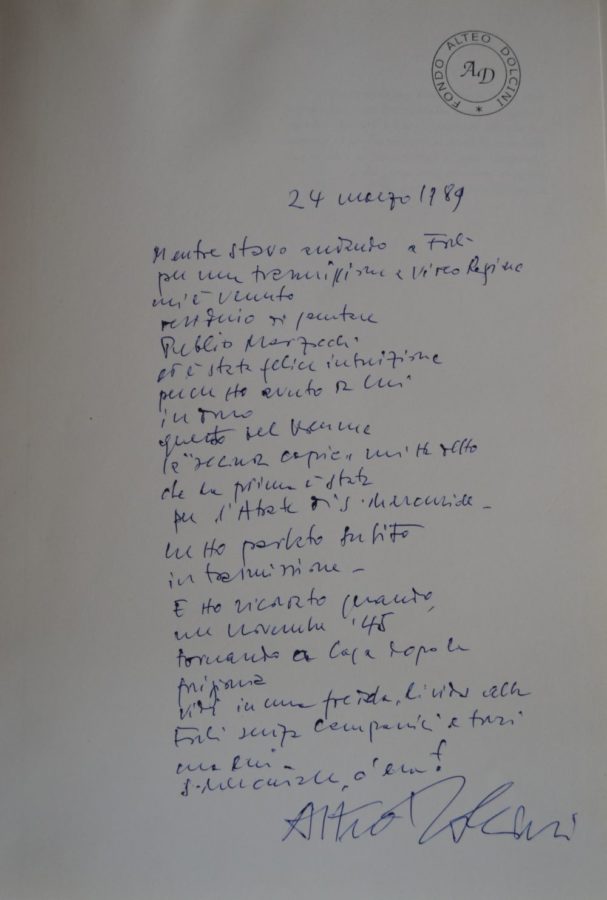 FONDO ALTEO DOLCINI *
AD
24 marzo 1989
Mentre stavo andando a Forlì
per una trasmissione a Video Regione
mi è venuto
desiderio di
Publio
ed è stata felice intuizione
perché ho avuto da lui
in dono
questo bel volume
la "seconda copia" mi ha detto
che la prima è stata
per l'Abate di S. Mercuriale -
Ne ho parlato subito
in trasmissione -
E ho ricordato quando,
nel novembre '45
tornando a casa dopo la
prigionia
vidi in una fredda, livida alba
Forlì senza campanili e torri
ma lui -
S. Mercuriale, c'era!
Alteo Dolcini